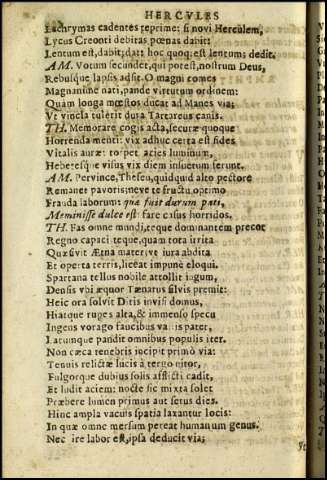 HERCVLES
Lachrymas cadentes reprime: si novi Herculem,
Lycus Creonti debitas pœnas dabit:
Lentum est, dabit; dat: hoc quoq; est lentum; dedit.
AM. Votum secundet, qui potest, nostrum Deus,
Rebusque lapsis adsit. O magni comes
Magnanime nati, pande virtutum ordinem:
Quam longa mœstos ducat ad Manes via;
Vt vincla tulerit dura Tartareus canis.
TH. Memorare cogis acta, securæ quoque
Horrenda menti: vix adhuc certa est fides
Vitalis auræ: torpet acies luminum,
Hebetesque visus vix diem insuetum ferunt.
AM. Pervince, Theseu, quidquid alto pectore
Remanet pavoris; neve te fructu optimo
Frauda laborum: quæ fuit durum pati,
Meminisse dulce est: fare casus horridos.
TH. Fas omne mundi, teque dominantem precor
Regno capaci: teque, quam tota irrita
Quæsivit Ætna mater: ive iura abdita
Et operta terris, liceat impune eloqui.
Spartana tellus nobile attollit iugum,
Densis vbi æquor Tænarus silvis premit:
Heic ora solvit Ditis invisi domus,
Hiatque ruges alta, & immenso specu
Ingens vorago faucibus vastis patet,
Latumque pandit omnibus populis iter.
Non cæca tenebris incipit primò via:
Tenuis relictæ lucis à tergo nitor,
Fulgorque dubius solis afflicti cadit,
Et ludit aciem: nocte sic mixta solet
Præbere lumen primus aut serus dies.
Hinc ampla vacuis spatia laxantur locis:
In quæ omne mersum pereat humanum genus.
Nec ire labor est, ipsa deducit via;